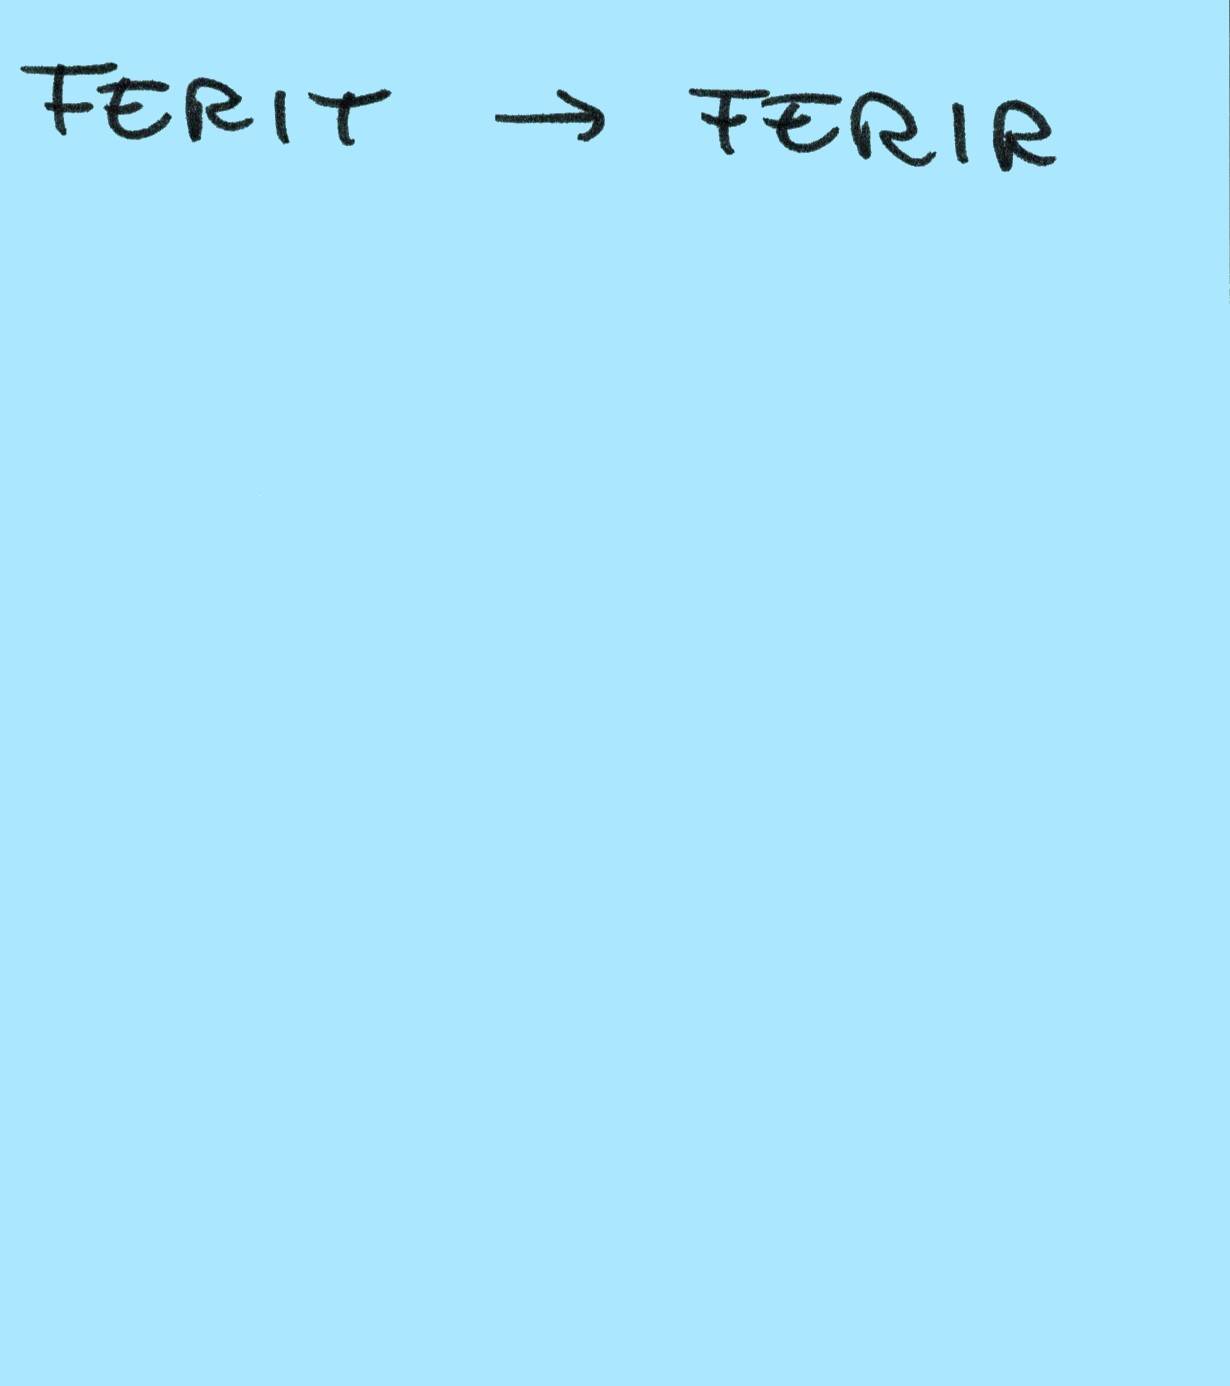 FERIT → FERIR